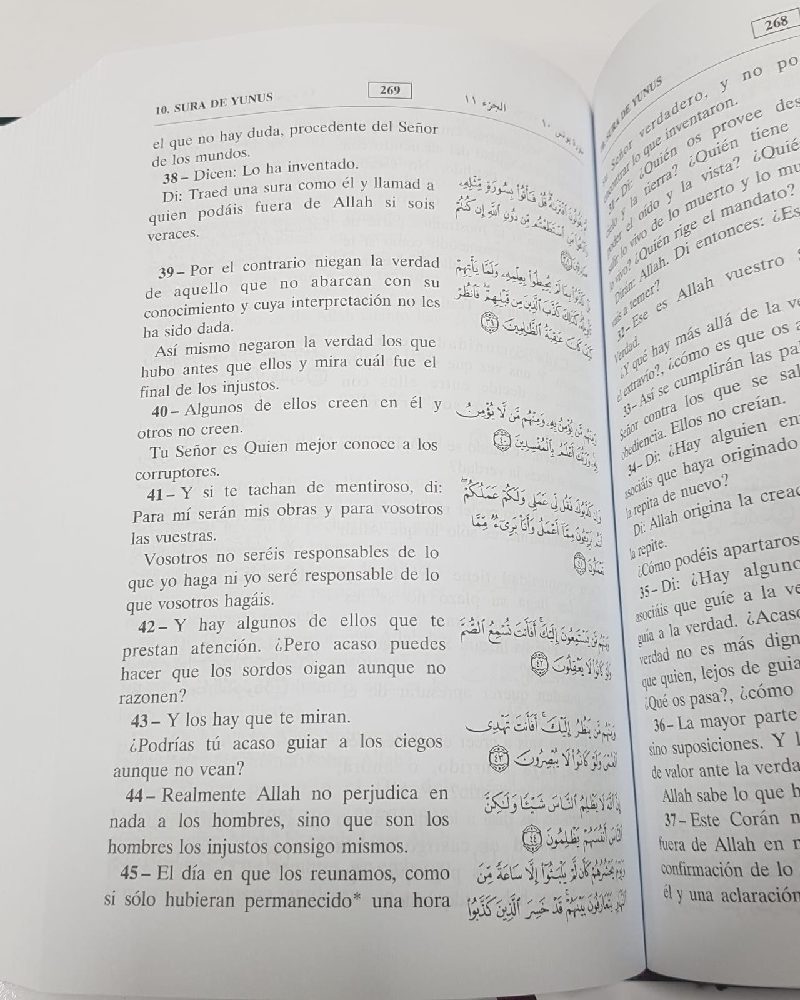 10. SURA DE YUNUS
269
الجزء ١١
سورة يونس ١٠
el que no hay duda, procedente del Señor
de los mundos.
38 – Dicen: Lo ha inventado.
Di: Traed una sura como él y llamad a
quien podáis fuera de Allah si sois
veraces.
39 – Por el contrario niegan la verdad
de aquello que no abarcan con su
conocimiento y cuya interpretación no les
ha sido dada.
Así mismo negaron la verdad los que
hubo antes que ellos y mira cuál fue el
final de los injustos.
40 – Algunos de ellos creen en él y
otros no creen.
Tu Señor es Quien mejor conoce a los
corruptores.
41 – Y si te tachan de mentiroso, di:
Para mí serán mis obras y para vosotros
las vuestras.
Vosotros no seréis responsables de lo
que yo haga ni yo seré responsable de lo
que vosotros hagáis.
42 – Y hay algunos de ellos que te
prestan atención. ¿Pero acaso puedes
hacer que los sordos oigan aunque no
razonen?
43 – Y los hay que te miran.
¿Podrías tú acaso guiar a los ciegos
aunque no vean?
44 – Realmente Allah no perjudica en
nada a los hombres, sino que son los
hombres los injustos consigo mismos.
45 – El día en que los reunamos, como
si sólo hubieran permanecido* una hora
يَقُولُونَ ٱفْتَرَىٰهُ قُلْ فَأْتُوا۟ بِسُورَةٍ مِّثْلِهِۦ
مَنِ ٱسْتَطَعْتُم مِّن دُونِ ٱللَّهِ إِن كُنتُمْ
كَذَّبُوا۟ بِمَا لَمْ يُحِيطُوا۟ بِعِلْمِهِۦ وَلَمَّا يَأْتِهِمْ
تَأْوِيلُهُۥ كَذَٰلِكَ كَذَّبَ ٱلَّذِينَ مِن قَبْلِهِمْ فَٱنظُرْ
كَيْفَ كَانَ عَٰقِبَةُ ٱلظَّٰلِمِينَ ٣٩
وَمِنْهُم مَّن يُؤْمِنُ بِهِۦ وَمِنْهُم مَّن لَّا يُؤْمِنُ
بِهِۦ وَرَبُّكَ أَعْلَمُ بِٱلْمُفْسِدِينَ ٤٠
وَإِن كَذَّبُوكَ فَقُل لِّى عَمَلِى وَلَكُمْ عَمَلُكُمْ
أَنتُم بَرِيٓـُٔونَ مِمَّآ أَعْمَلُ وَأَنَا۠ بَرِىٓءٌ مِّمَّا
تَعْمَلُونَ ٤١
وَمِنْهُم مَّن يَسْتَمِعُونَ إِلَيْكَ أَفَأَنتَ تُسْمِعُ ٱلصُّمَّ
وَلَوْ كَانُوا۟ لَا يَعْقِلُونَ ٤٢
وَمِنْهُم مَّن يَنظُرُ إِلَيْكَ أَفَأَنتَ تَهْدِى
ٱلْعُمْىَ وَلَوْ كَانُوا۟ لَا يُبْصِرُونَ ٤٣
إِنَّ ٱللَّهَ لَا يَظْلِمُ ٱلنَّاسَ شَيْـًٔا وَلَٰكِنَّ
ٱلنَّاسَ أَنفُسَهُمْ يَظْلِمُونَ ٤٤
وَيَوْمَ يَحْشُرُهُمْ كَأَن لَّمْ يَلْبَثُوٓا۟ إِلَّا سَاعَةً مِّنَ
ٱلنَّهَارِ يَتَعَارَفُونَ بَيْنَهُمْ قَدْ خَسِرَ ٱلَّذِينَ كَذَّبُوا۟
268
SURA DE YUNUS
Señor verdadero, y no po
lo que inventaron.
31 – Di: ¿Quién os provee des
y la tierra? ¿Quién tiene
el oído y la vista? ¿Quié
lo vivo de lo muerto y lo mu
vivo? ¿Quién rige el mandato?
Dirán: Allah. Di entonces: ¿Es
a temer?
32 – Ese es Allah vuestro
Verdad.
¿Y qué hay más allá de la v
el extravío?, ¿cómo es que os a
33 – Así se cumplirán las pa
Señor contra los que se sal
obediencia. Ellos no creían.
34 – Di: ¿Hay alguien en
asociáis que haya originado
la repita de nuevo?
Di: Allah origina la creac
la repite.
¿Cómo podéis apartaros
35 – Di: ¿Hay alguno
asociáis que guíe a la ve
guía a la verdad. ¿Acaso
verdad no es más dign
que quien, lejos de guia
¿Qué os pasa?, ¿cómo
36 – La mayor parte
sino suposiciones. Y l
de valor ante la verda
Allah sabe lo que h
37 – Este Corán n
fuera de Allah en r
confirmación de lo
él y una aclaración